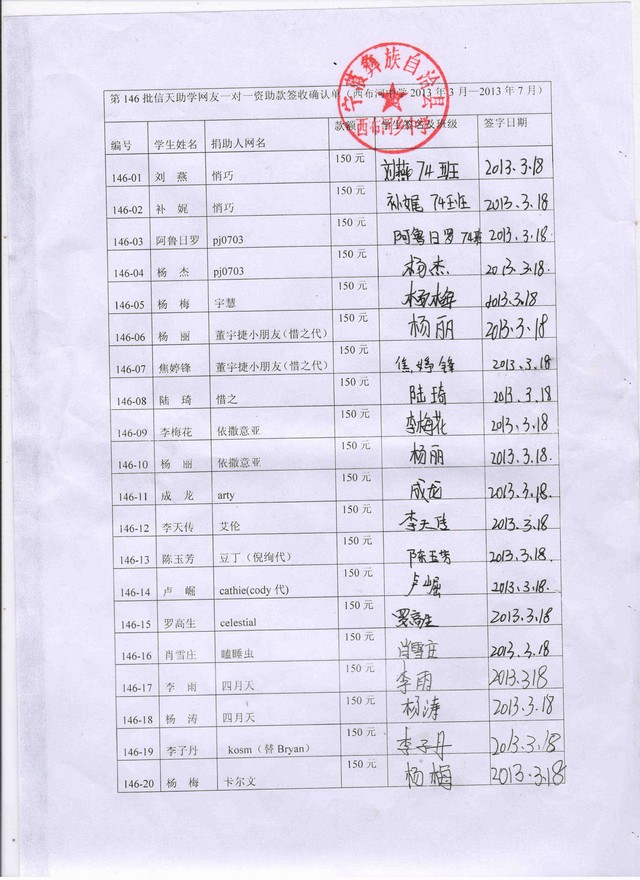 宁蒗彝族自治县
西布河乡中学
第146批信天助学网友一对一资助款签收确认单（西布河中学2013年3月—2013年7月）
编号 学生姓名 捐助人网名 款额 学生签名及班级 签字日期
146-01 刘 燕 悄巧 150元 刘燕 74班 2013.3.18
146-02 补 娓 悄巧 150元 补娓 74班 2013.3.18
146-03 阿鲁日罗 pj0703 150元 阿鲁日罗 74班 2013.3.18
146-04 杨 杰 pj0703 150元 杨杰 2013.3.18
146-05 杨 梅 宇慧 150元 杨梅 2013.3.18
146-06 杨 丽 董宇捷小朋友（惜之代） 150元 杨丽 2013.3.18
146-07 焦婷锋 董宇捷小朋友（惜之代） 150元 焦婷锋 2013.3.18
146-08 陆 琦 惜之 150元 陆琦 2013.3.18
146-09 李梅花 依撒意亚 150元 李梅花 2013.3.18.
146-10 杨 丽 依撒意亚 150元 杨丽 2013.3.18.
146-11 成 龙 arty 150元 成龙 2013.3.18.
146-12 李天传 艾伦 150元 李天传 2013.3.18
146-13 陈玉芳 豆丁（倪绚代） 150元 陈玉芳 2013.3.18.
146-14 卢 崛 cathie(cody代) 150元 卢崛 2013.3.18.
146-15 罗高生 celestial 150元 罗高生 2013.3.18
146-16 肖雪庄 瞌睡虫 150元 肖雪庄 2013.3.18
146-17 李 雨 四月天 150元 李雨 2013.3.18
146-18 杨 涛 四月天 150元 杨涛 2013.3.18
146-19 李子丹 kosm（替Bryan） 150元 李子丹 2013.3.18
146-20 杨 梅 卡尔文 150元 杨梅 2013.3.18